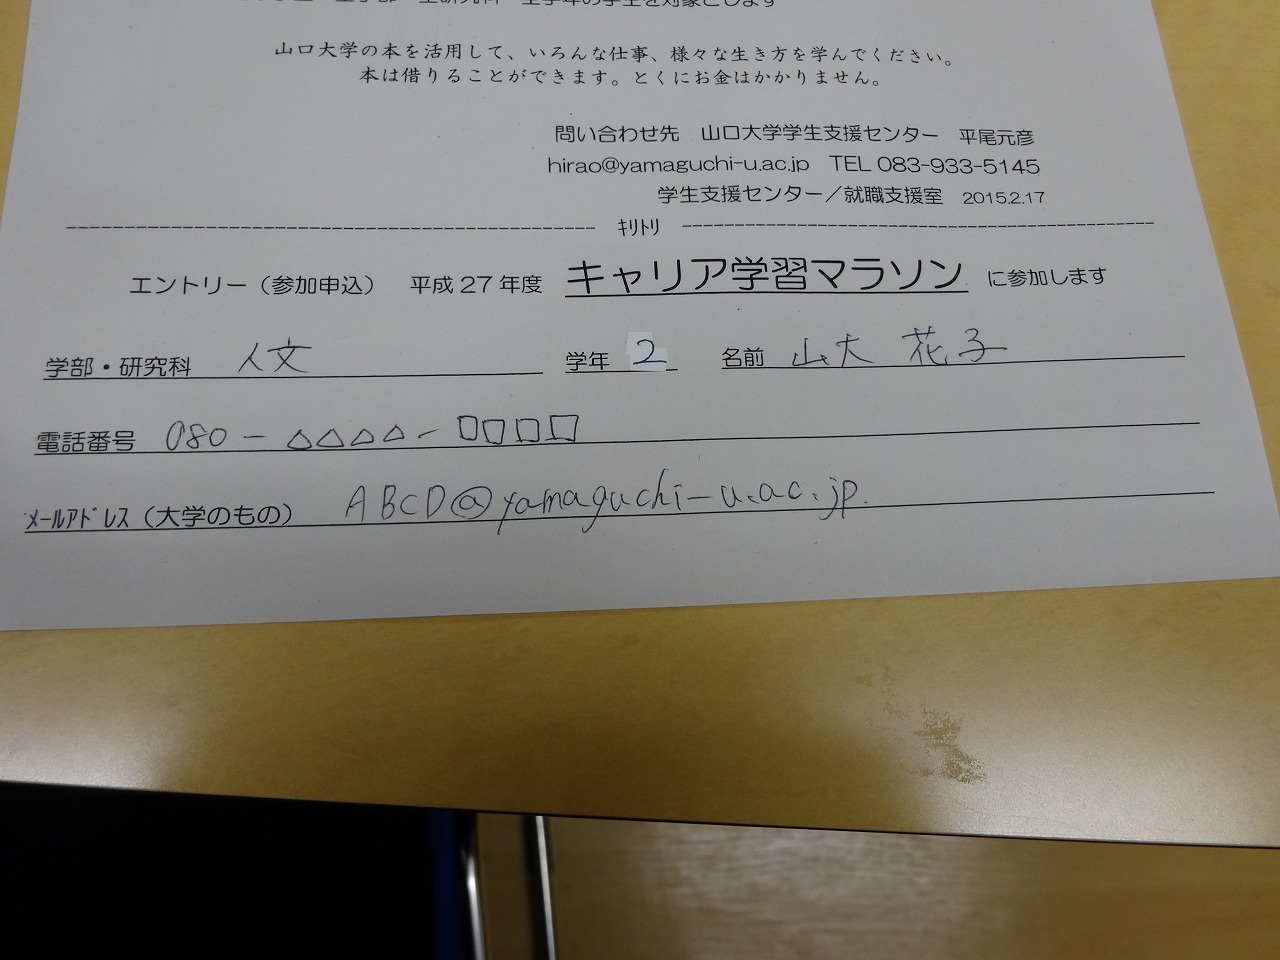 全学部・全研究科・全学年の学生を対象とします
山口大学の本を活用して、いろんな仕事、様々な生き方を学んでください。
本は借りることができます。とくにお金はかかりません。
問い合わせ先 山口大学学生支援センター 平尾元彦
hirao@yamaguchi-u.ac.jp TEL 083-933-5145
学生支援センター／就職支援室 2015.2.17
ｷﾘﾄﾘ
エントリー（参加申込） 平成27年度 キャリア学習マラソン に参加します
学部・研究科 人文 学年 2 名前 山大 花子
電話番号 080-△△△△-□□□□
ﾒｰﾙｱﾄﾞﾚｽ（大学のもの） ABCD@yamaguchi-u.ac.jp